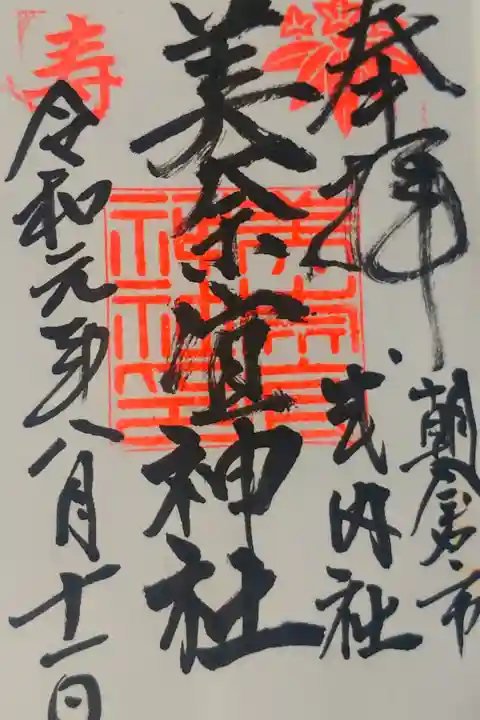 奉拝
朝倉市
式内社
美奈宜神社
寿
令和元年八月十一日